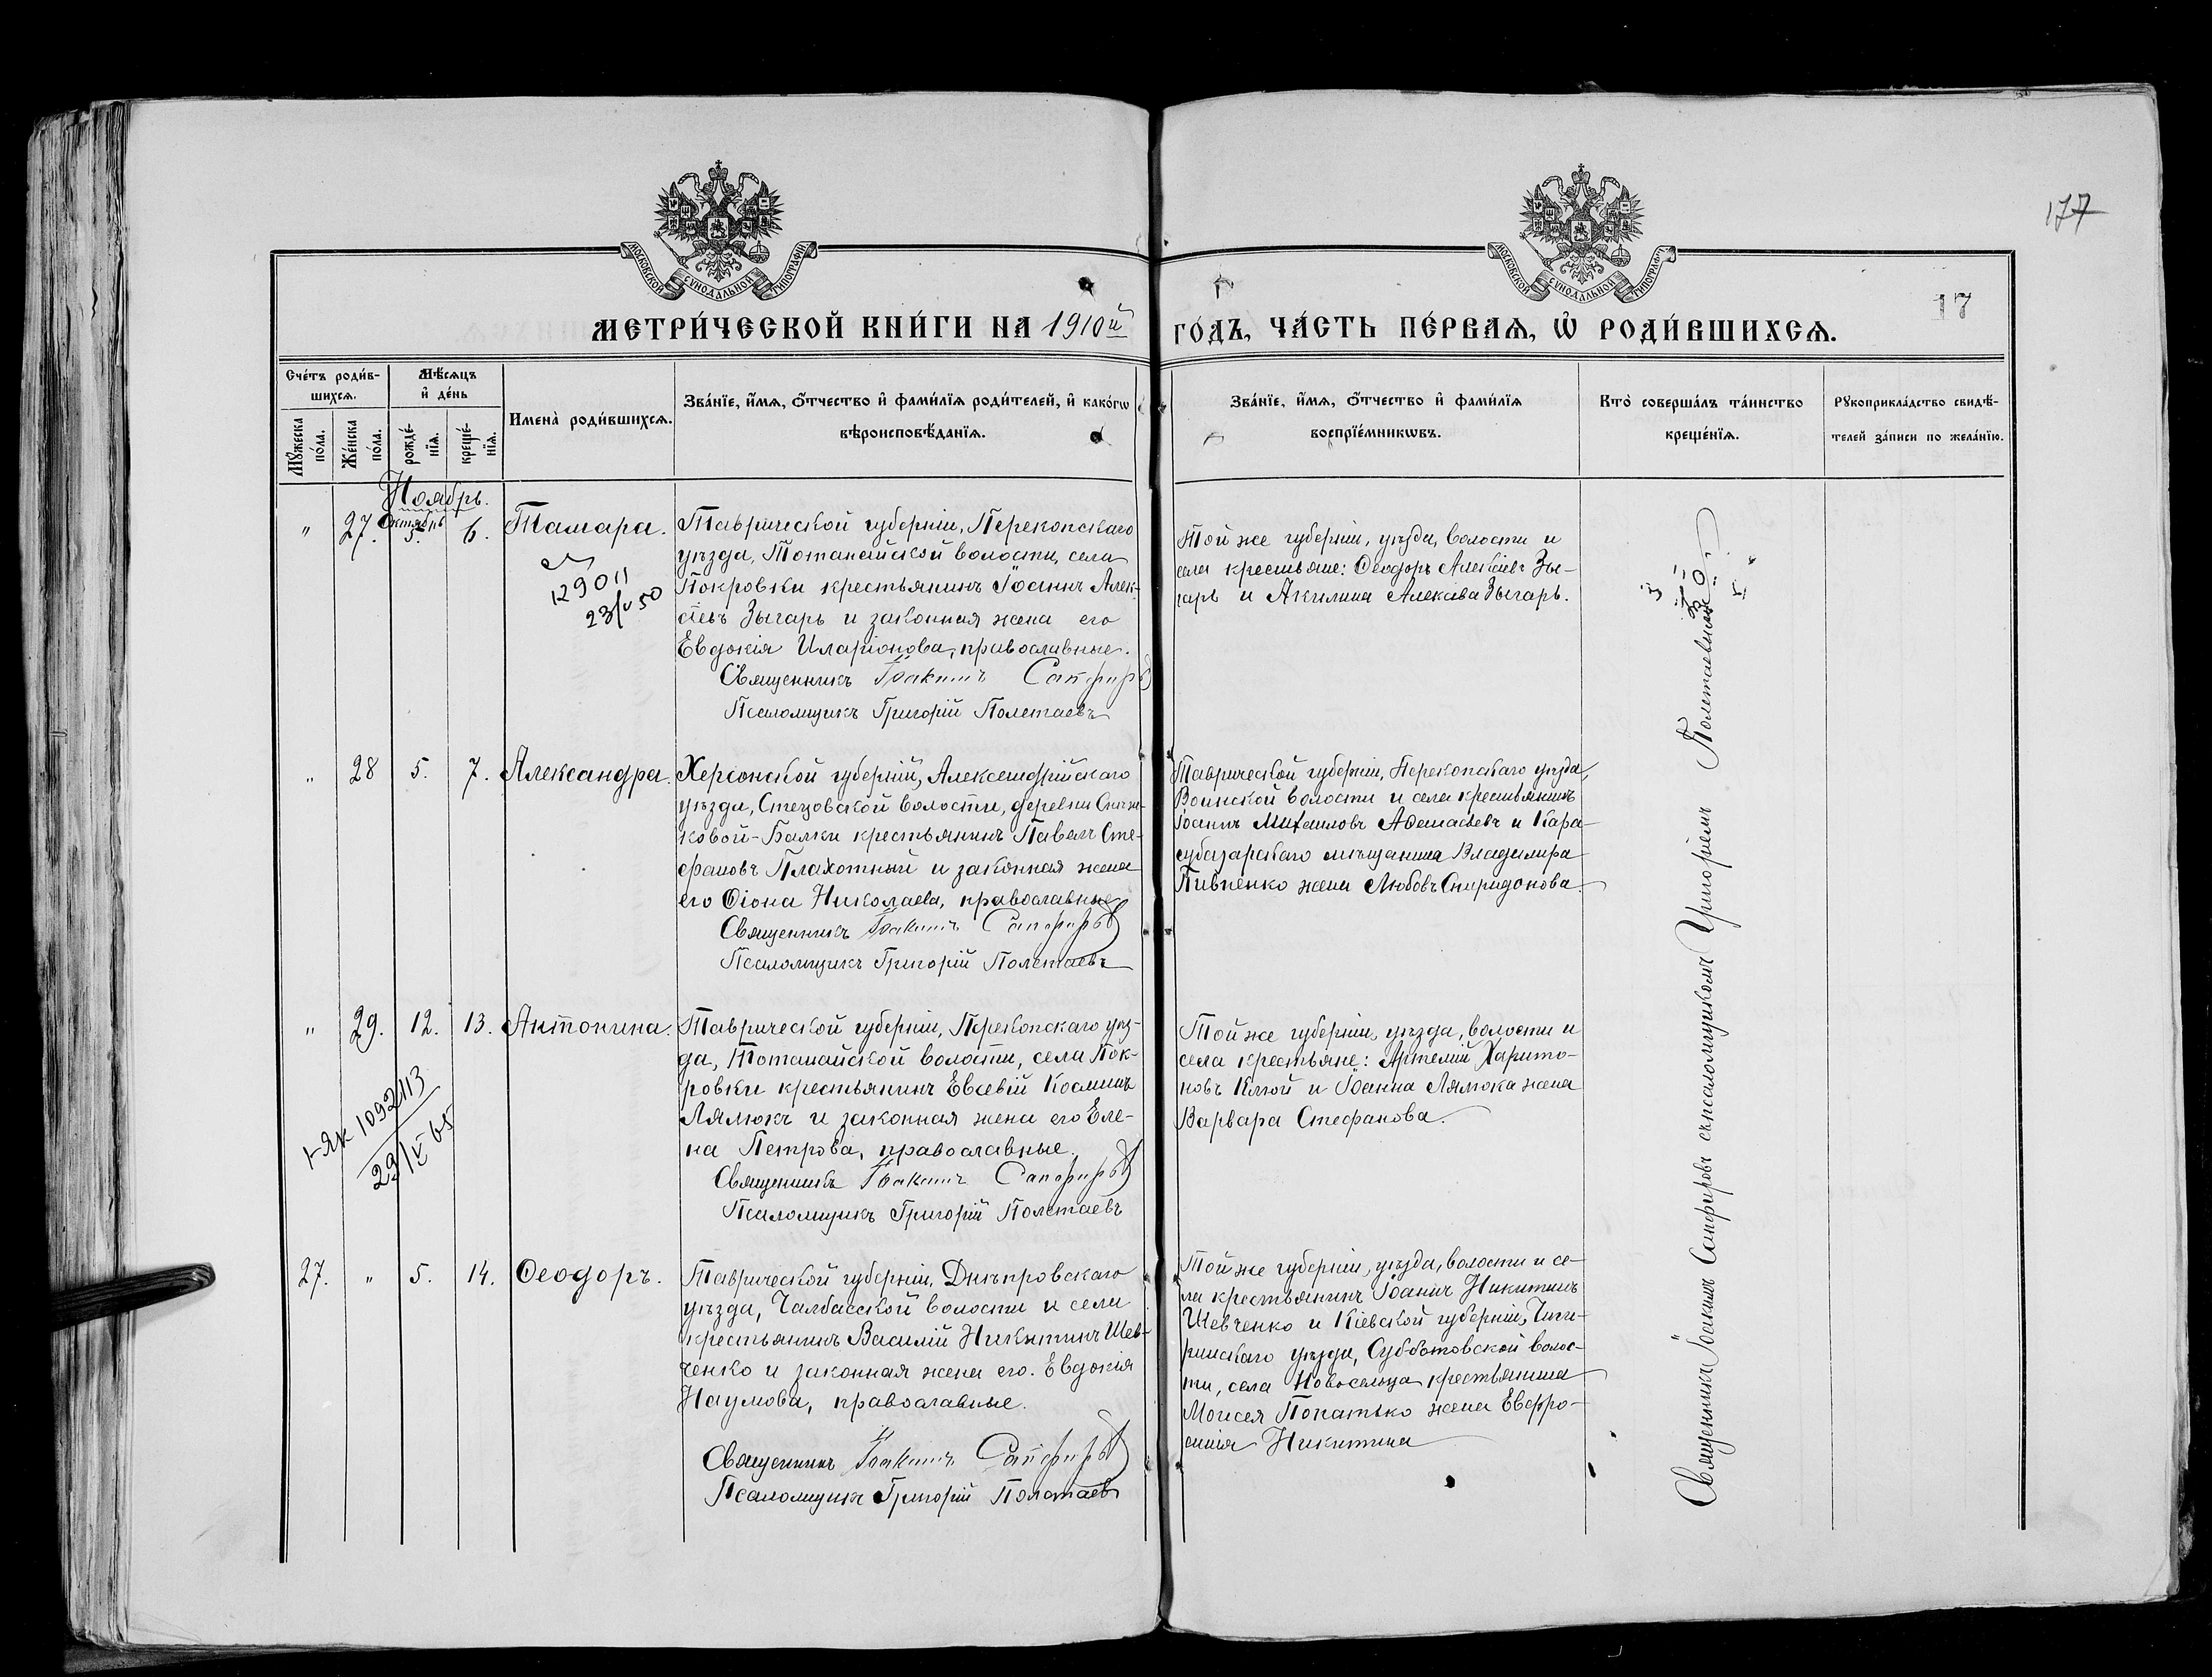 177
МОСКОВСКОЙ СѴНОДАЛЬНОЙ ТИПОГРАФІИ
МОСКОВСКОЙ СѴНОДАЛЬНОЙ ТИПОГРАФІИ
17
МЕТРИ́ЧЕСКОЙ КНИ́ГИ НА 1910й ГО́ДЪ, ЧА́СТЬ ПЕ́РВАѦ, Ѽ РОДИ́ВШИХСѦ.
Сче́тъ роди́в-
шихсѧ.
Мꙋжеска по́ла.
Же́нска по́ла.
Мѣ́сѧцъ
и҆ де́нь
рожде́-
нїѧ.
креще́-
нїѧ.
Имена̀ роди́вшихсѧ.
Зва́нїе, и҆́мѧ, ѻ҆́тчество и҆ фами́лїѧ роди́телей, и҆ како́гѡ
вѣроисповѣ́данїѧ.
Зва́нїе, и҆́мѧ, ѻ҆́тчество и҆ фами́лїѧ
воспрїе́мникѡвъ.
Кто̀ соверша́лъ та́инство
креще́нїѧ.
Рꙋкоприкла́дство свидѣ́-
телей за́писи по жела́нїю.
Ноябрь.
" 27. Октябрь 5. 6. Тамара.
129011
23/V 50
Таврической губерніи, Перекопскаго
уѣзда, Тотанайской волости, села
Покровки крестьянинъ Іоаннъ Алек-
сѣевъ Зыгарь и законная жена его
Евдокія Иларіонова, православные.
Священникъ Іоакимъ Сапфировъ
Псаломщикъ Григорій Полетаевъ
Той же губерніи, уѣзда, волости и
села крестьяне: Ѳеодоръ Алексѣевъ Зы-
гарь и Акилина Алексѣева Зыгарь.
" 28 5. 7. Александра.
Херсонской губерніи, Александрійскаго
уѣзда, Стецовской волости, деревни
ковой-Балки крестьянинъ Павелъ Сте-
фановъ Плахотный и законная жена
его Ѳіона Николаева, православные
Священникъ Іоакимъ Сапфировъ
Псаломщикъ Григорій Полетаевъ
Таврической губерніи, Перекопскаго уѣзда,
Воинской волости и села крестьянинъ
Іоаннъ Михаиловъ и Кара-
субазарскаго мѣщанина Владимира
Пивненко жена Любовь Спиридонова.
" 29. 12. 13. Антонина.
I-ЯК 1092113
29/IV 65
Таврической губерніи, Перекопскаго уѣз-
да, Тотанайской волости, села Пок-
ровки крестьянинъ Евсевій Косминъ
Лямокъ и законная жена его Еле-
на Петрова, православные.
Священникъ Іоакимъ Сапфировъ
Псаломщикъ Григорій Полетаевъ
Той же губерніи, уѣзда, волости и
села крестьяне: Артемій Харито-
новъ и Іоанна Лямока жена
Варвара Стефанова.
27. " 5. 14. Ѳеодоръ.
Таврической губерніи, Днѣпровскаго
уѣзда, Чалбасской волости и села
крестьянинъ Василій Никитинъ Шев-
ченко и законная жена его. Евдокія
Наумова, православные.
Священникъ Іоакимъ Сапфировъ
Псаломщикъ Григорій Полетаевъ
Той же губерніи, уѣзда, волости и се-
ла крестьянинъ Іоаннъ Никитинъ
Шевченко и Кіевской губерніи, Чиги-
ринскаго уѣзда, Субботовской волос-
ти, села Новосельца крестьянина
Моисея Попатько жена Евфро-
синія Никитина
Священникъ Іоакимъ Сапфировъ съ псаломщикомъ Григоріемъ Полетаевымъ